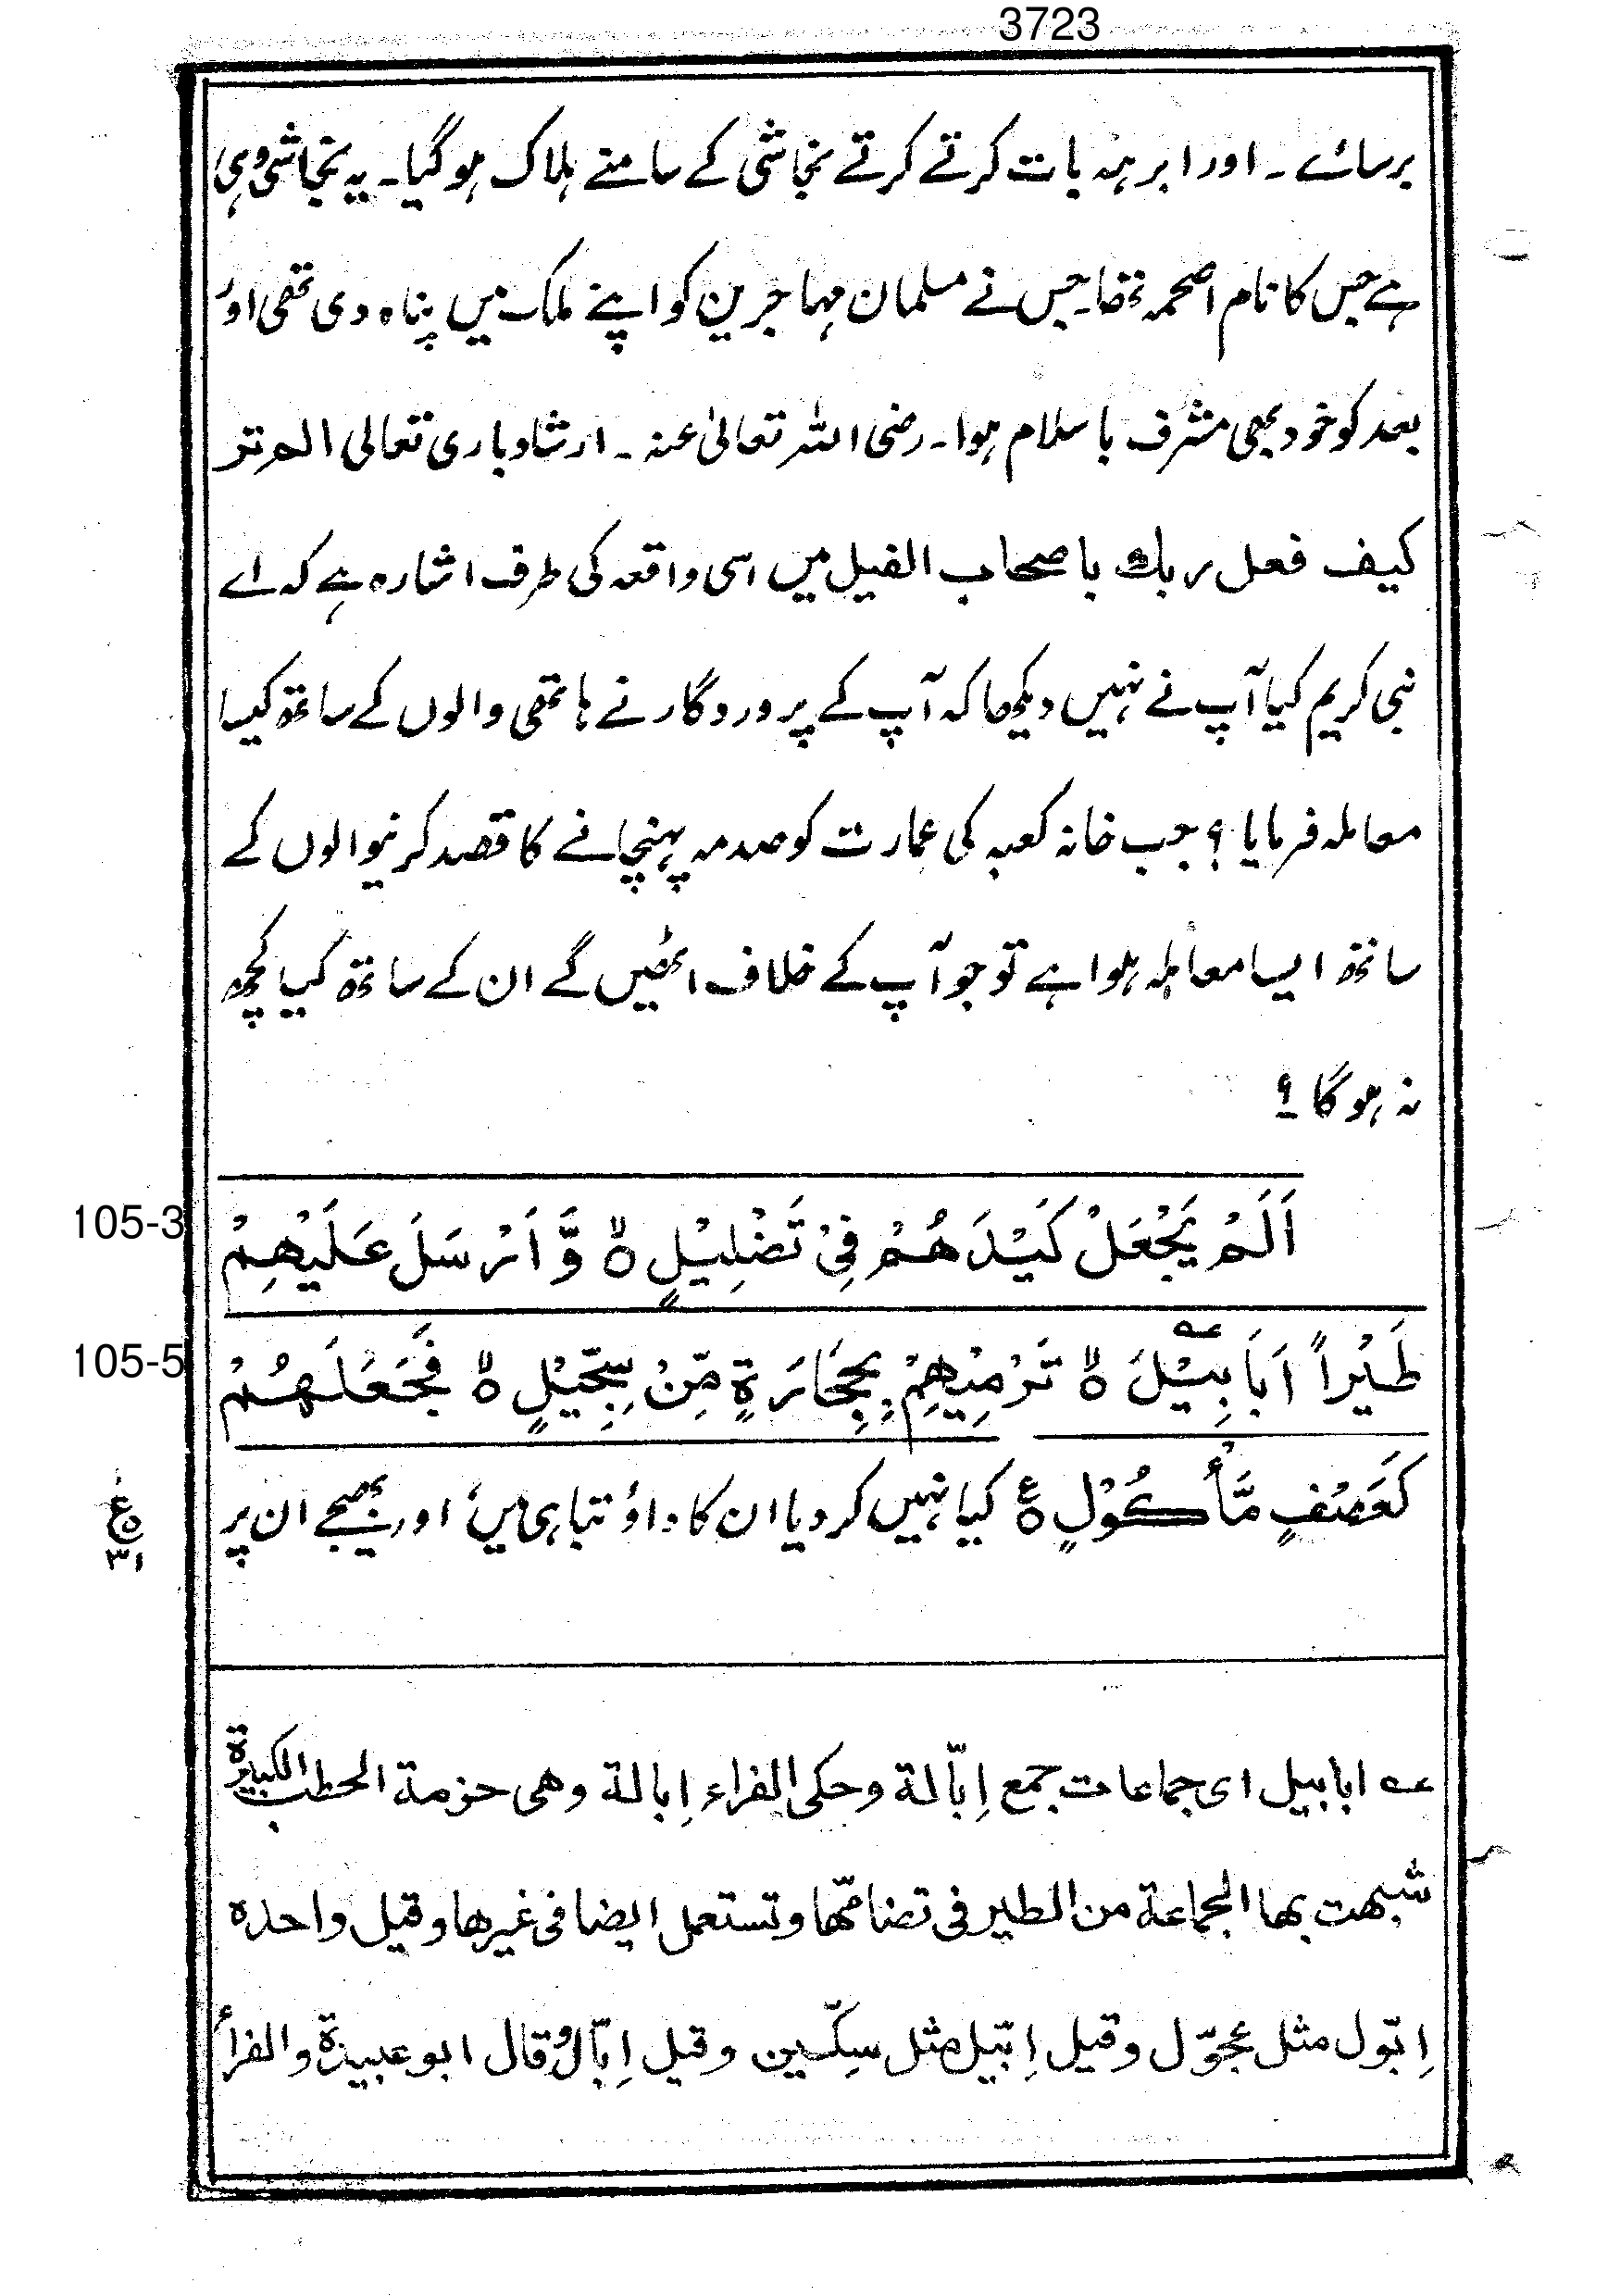 3723
برسائے ۔ اور ابرہہ بات کرتے کرتے نجاشی کے سامنے ہلاک ہوگیا۔ یہ نجاشی وہی
ہے جس کا نام اصحمہ تھا۔ جس نے مسلمان مہاجرین کو اپنے ملک میں پناہ دی تھی اور
بعد کو خود بھی مشرف باسلام ہوا۔ رضی اللہ تعالیٰ عنہ ۔ ارشاد باری تعالی الم تر
کیف فعل ربك باصحاب الفیل میں اسی واقعہ کی طرف اشارہ ہے کہ اے
نبی کریم کیا آپ نے نہیں دیکھا کہ آپ کے پروردگار نے ہاتھی والوں کے ساتھ کیسا
معاملہ فرمایا ؟ جب خانہ کعبہ کی عمارت کو صدمہ پہنچانے کا قصد کرنیوالوں کے
ساتھ ایسا معاملہ ہوا ہے تو جو آپ کے خلاف اٹھیں گے ان کے ساتھ کیا کچھ
نہ ہوگا ؟
105-3 اَلَمْ یَجْعَلْ کَیْدَهُمْ فِیْ تَضْلِیْلٍ ۙ وَّ اَرْسَلَ عَلَیْهِمْ
105-5 طَیْرًا اَبَابِیْلَ ۙ تَرْمِیْهِمْ بِحِجَارَةٍ مِّنْ سِجِّیْلٍ ۙ فَجَعَلَهُمْ
کَعَصْفٍ مَّأْکُوْلٍ ع کیا نہیں کر دیا ان کا داؤ تباہی میں، اور بھیجے ان پر
ع
۵
۳۱
عہ ابابیل ای جماعات جمع اِبّالة وحکی الفراء اِبالة وھی حزمة الحطب الکبیرة
شبھت بھا الجماعة من الطیر فی تضامّھا وتستعمل ایضا فی غیرھا وقیل واحدہ
اِبّول مثل عجّول وقیل اِبّیل مثل سِکّین وقیل اِبّال وقال ابو عبیدة والفرأ